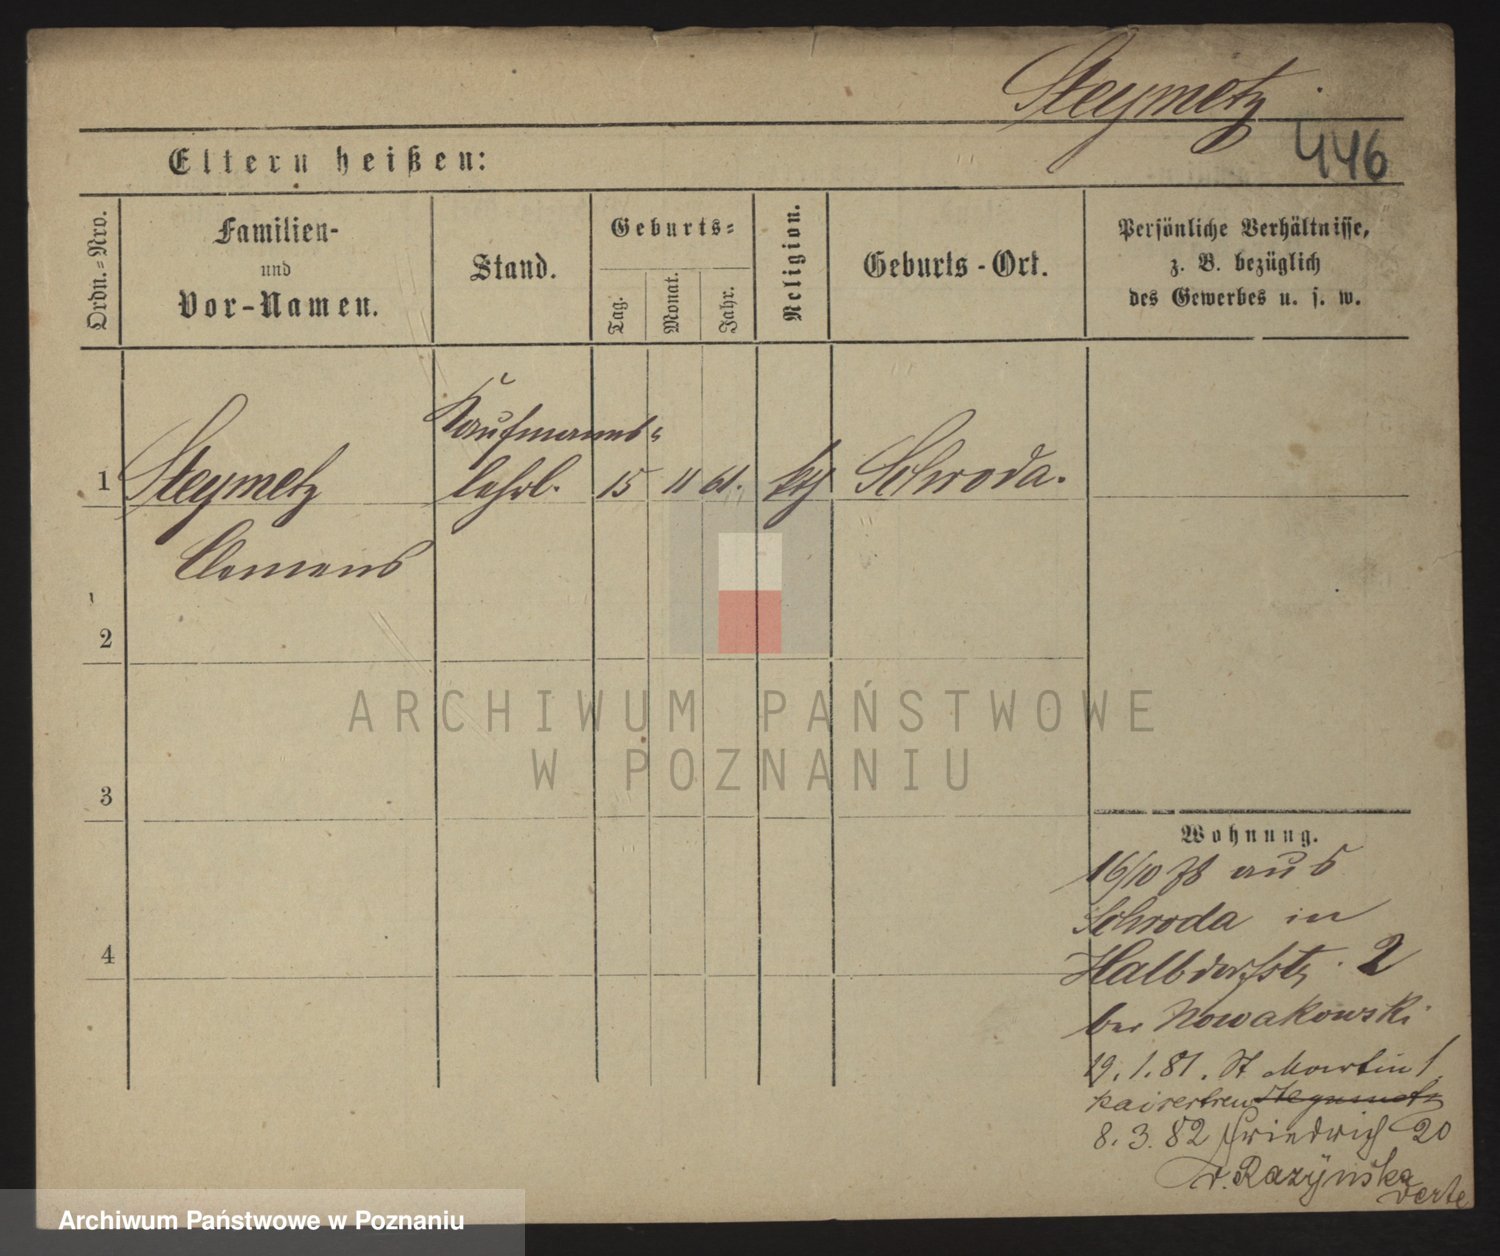 Steymetz
446
Eltern heißen:
Ordn.=Nro.
Familien-
und
Vor-Namen.
Stand.
Geburts=
Tag.
Monat.
Jahr.
Religion.
Geburts-Ort.
Persönliche Verhältnisse,
z. B. bezüglich
des Gewerbes u. s. w.
Kaufmanns=
1 Steymetz lehrl. 15 11 61. kth Schroda.
Clemens
2
3
4
ARCHIWUM PAŃSTWOWE
W POZNANIU
Wohnung.
16/10 78 aus
Schroda in
Halbdorfstr. 2
bei Nowakowski
19.1.81. St Martin 1
Steymetz
8.3.82 Friedrich 20
v. Razÿnska
verte
Archiwum Państwowe w Poznaniu